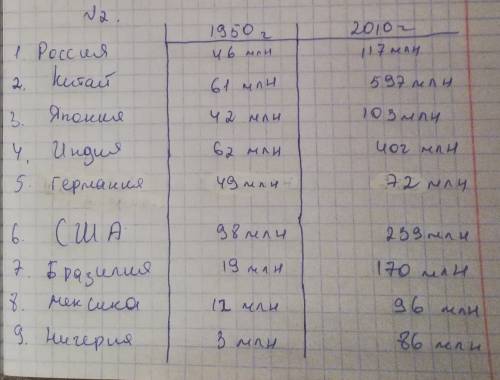 №2.
1950 г 2010 г
1 Россия 46 млн 117 млн
2. Китай 61 млн 597 млн
3. Япония 42 млн 103 млн
4. Индия 62 млн 402 млн
5. Германия 49 млн 72 млн
6. США 98 млн 259 млн
7. Бразилия 19 млн 170 млн
8. Мексика 12 млн 96 млн
9. Нигерия 3 млн 86 млн